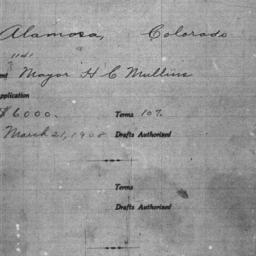 Alamosa, Colorado
1141
Mayor H C Mullins
pplication
$6000. Terms 10%
March 21, 1908 Drafts Authorized
Terms
Drafts Authorized